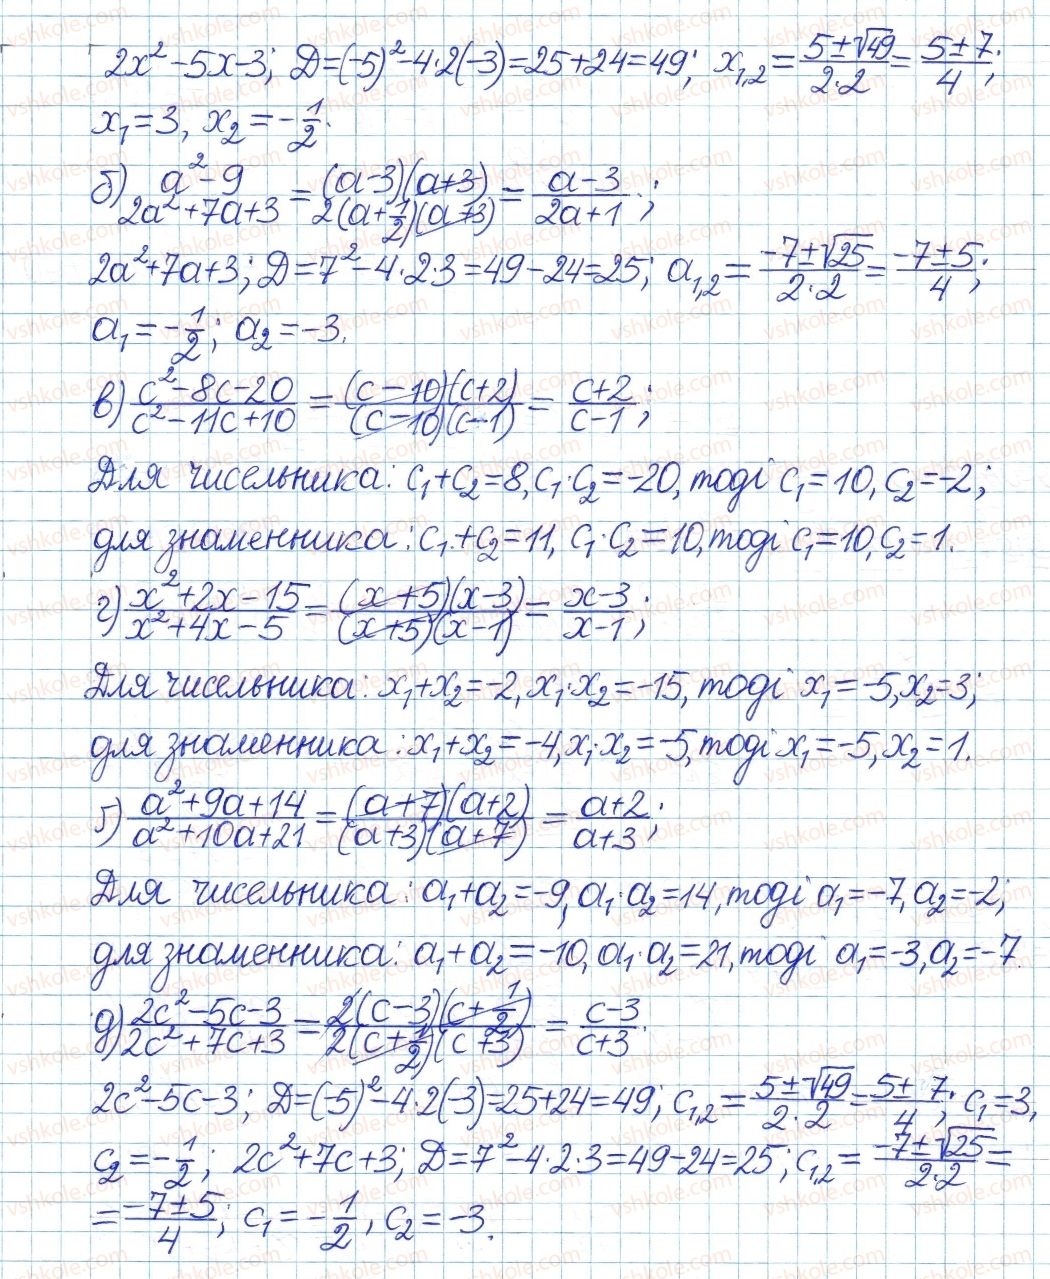 2x² - 5x - 3; D = (-5)² - 4·2(-3) = 25 + 24 = 49; x₁,₂ = (5 ± √49)/(2·2) = (5 ± 7)/4;
x₁ = 3, x₂ = -1/2.
б) (a² - 9)/(2a² + 7a + 3) = ((a - 3)(a + 3))/(2(a + 1/2)(a + 3)) = (a - 3)/(2a + 1);
2a² + 7a + 3; D = 7² - 4·2·3 = 49 - 24 = 25; a₁,₂ = (-7 ± √25)/(2·2) = (-7 ± 5)/4;
a₁ = -1/2; a₂ = -3.
в) (c² - 8c - 20)/(c² - 11c + 10) = ((c - 10)(c + 2))/((c - 10)(c - 1)) = (c + 2)/(c - 1);
Для чисельника: c₁ + c₂ = 8, c₁·c₂ = -20, тоді c₁ = 10, c₂ = -2;
для знаменника: c₁ + c₂ = 11, c₁·c₂ = 10, тоді c₁ = 10, c₂ = 1.
г) (x² + 2x - 15)/(x² + 4x - 5) = ((x + 5)(x - 3))/((x + 5)(x - 1)) = (x - 3)/(x - 1);
Для чисельника: x₁ + x₂ = -2, x₁·x₂ = -15, тоді x₁ = -5, x₂ = 3;
для знаменника: x₁ + x₂ = -4, x₁·x₂ = -5, тоді x₁ = -5, x₂ = 1.
ґ) (a² + 9a + 14)/(a² + 10a + 21) = ((a + 7)(a + 2))/((a + 3)(a + 7)) = (a + 2)/(a + 3);
Для чисельника: a₁ + a₂ = -9, a₁·a₂ = 14, тоді a₁ = -7, a₂ = -2;
для знаменника: a₁ + a₂ = -10, a₁·a₂ = 21, тоді a₁ = -3, a₂ = -7.
д) (2c² - 5c - 3)/(2c² + 7c + 3) = (2(c - 3)(c + 1/2))/(2(c + 1/2)(c + 3)) = (c - 3)/(c + 3).
2c² - 5c - 3; D = (-5)² - 4·2(-3) = 25 + 24 = 49; c₁,₂ = (5 ± √49)/(2·2) = (5 ± 7)/4; c₁ = 3,
c₂ = -1/2; 2c² + 7c + 3; D = 7² - 4·2·3 = 49 - 24 = 25; c₁,₂ = (-7 ± √25)/(2·2) =
= (-7 ± 5)/4; c₁ = -1/2, c₂ = -3.
vshkole.com